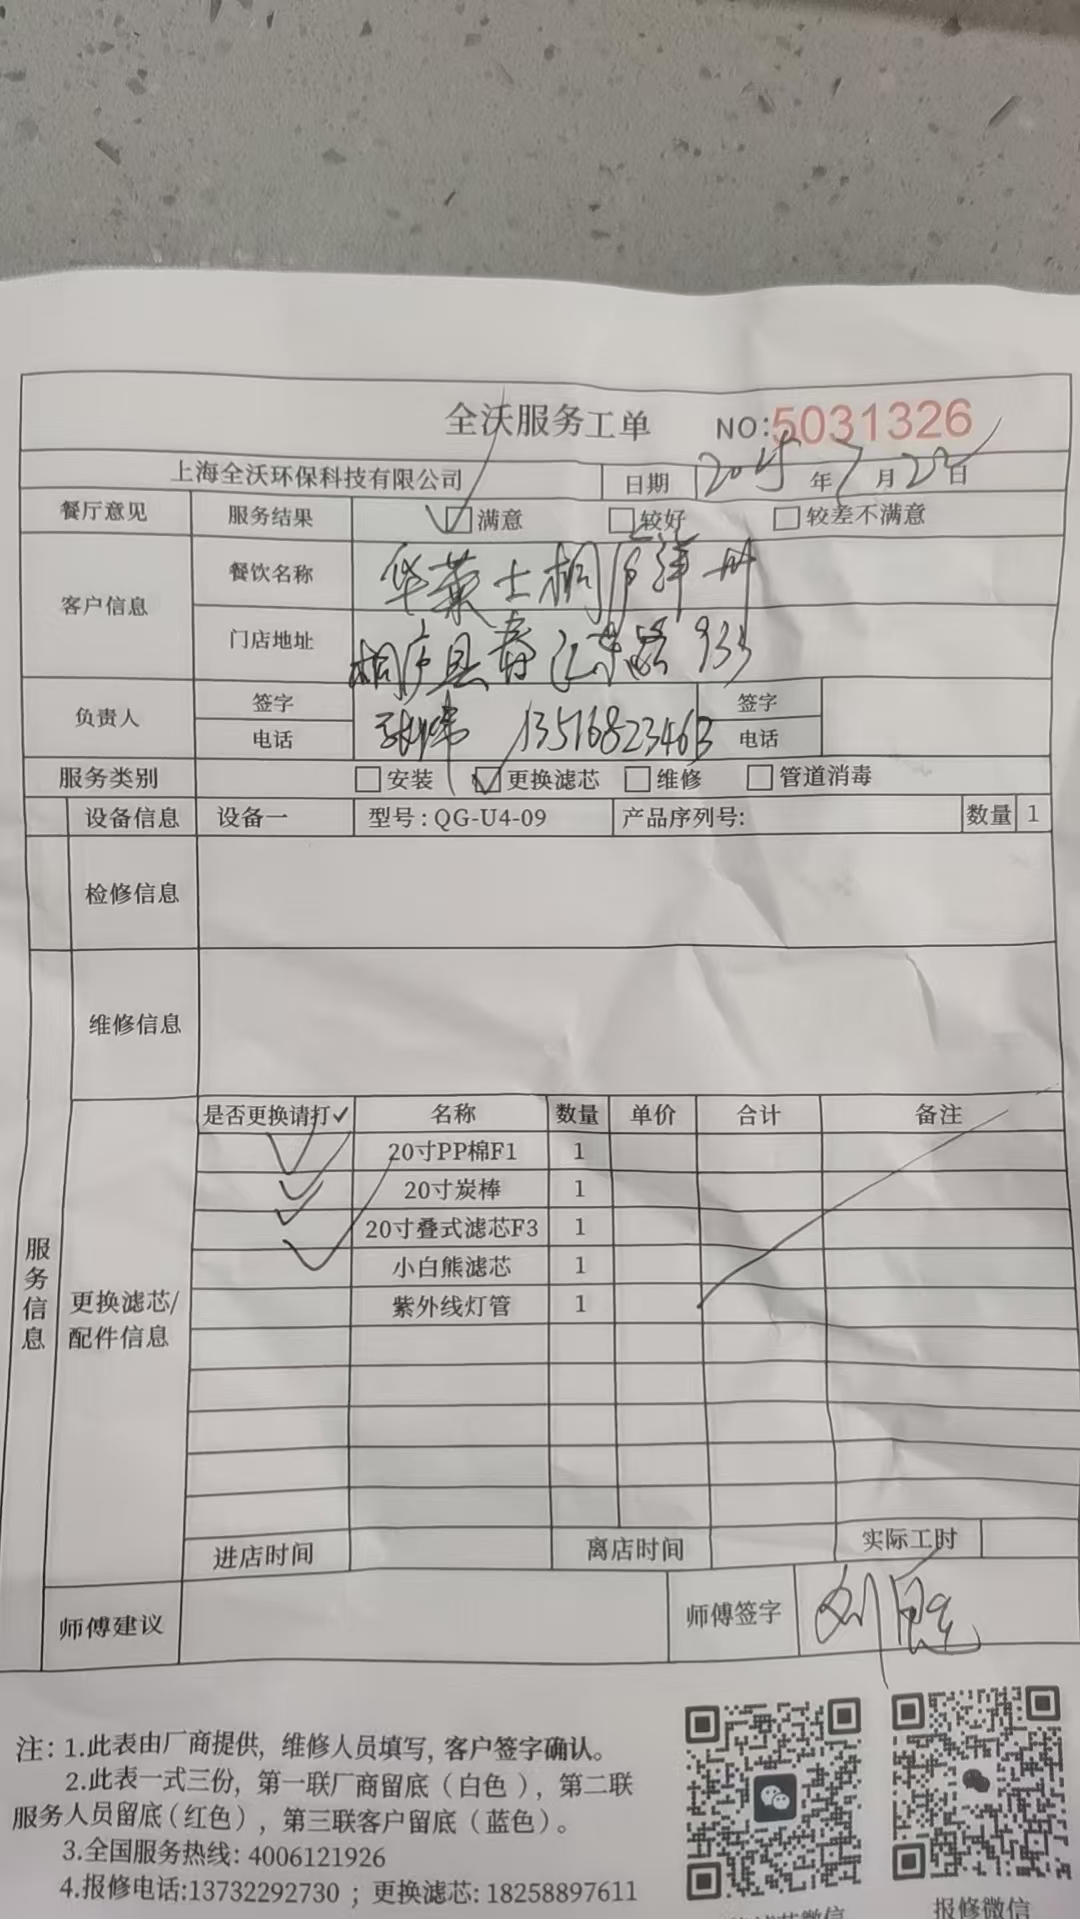 全沃服务工单 NO:5031326
上海全沃环保科技有限公司 日期 2025年7月22日
餐厅意见 服务结果 满意 较好 较差不满意
客户信息 餐饮名称 华莱士桐庐洋州
门店地址 桐庐县春江东路933
负责人 签字 签字
电话 13516823463 电话
服务类别 安装 更换滤芯 维修 管道消毒
设备信息 设备一 型号:QG-U4-09 产品序列号: 数量 1
检修信息
维修信息
服务信息
更换滤芯/配件信息
是否更换请打✓ 名称 数量 单价 合计 备注
✓ 20寸PP棉F1 1
✓ 20寸炭棒 1
✓ 20寸叠式滤芯F3 1
✓ 小白熊滤芯 1
紫外线灯管 1
进店时间 离店时间 实际工时
师傅建议 师傅签字 刘
注: 1.此表由厂商提供, 维修人员填写, 客户签字确认。
2.此表一式三份, 第一联厂商留底(白色), 第二联
服务人员留底(红色), 第三联客户留底(蓝色)。
3.全国服务热线: 4006121926
4.报修电话:13732292730 ; 更换滤芯: 18258897611
报修微信